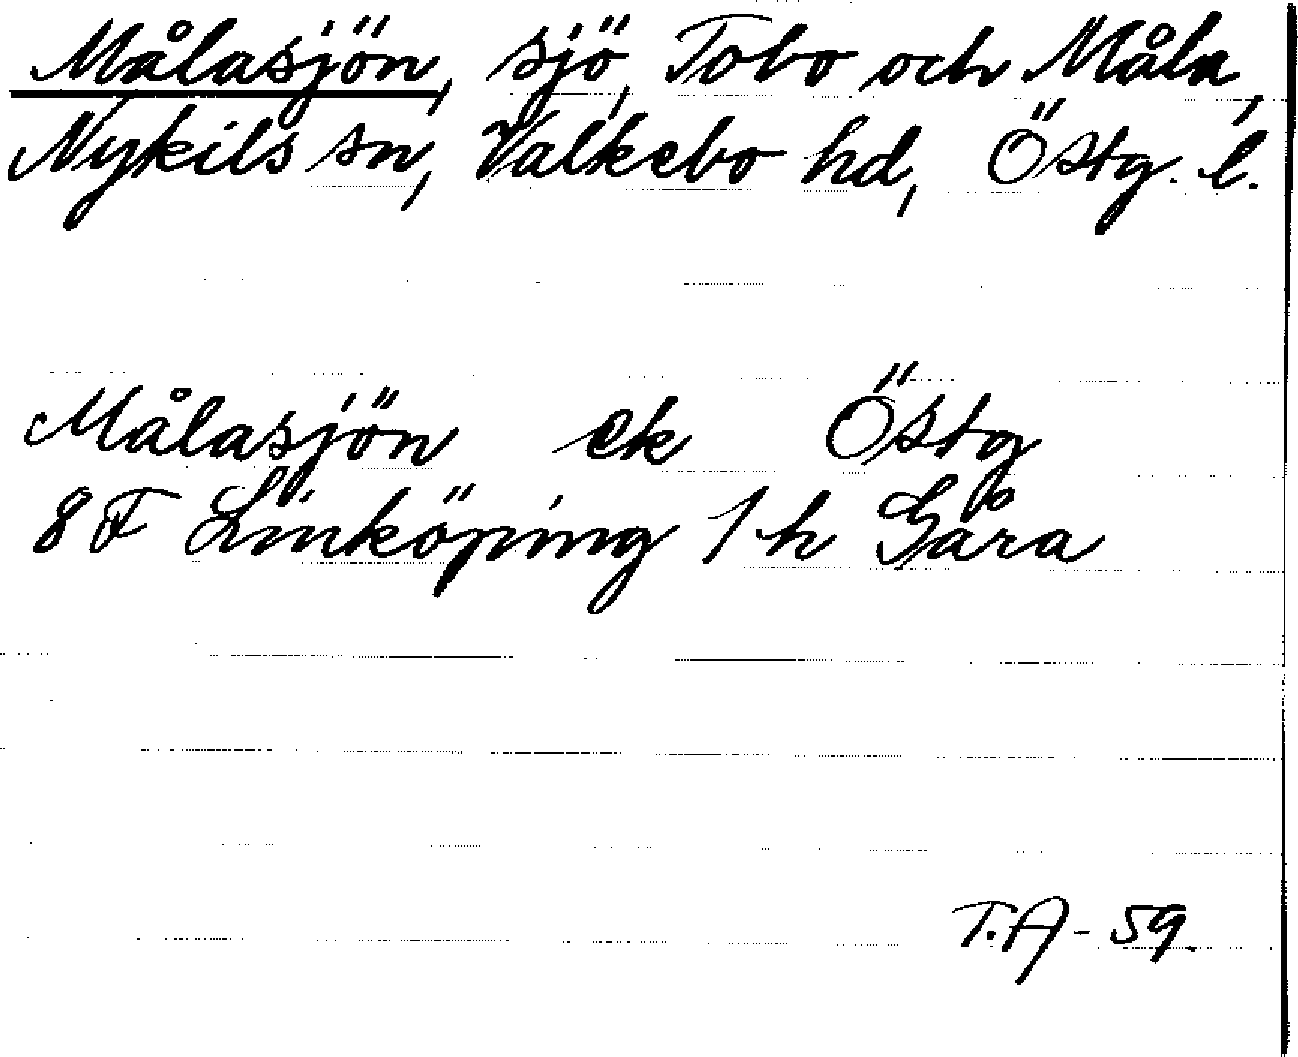 Målasjön, sjö, Tobo och Måla,
Nykils sn, Valkebo hd, Östg. l.
Målasjön ek Östg
8 F Linköping 1 h Gåra
T.A - 59.